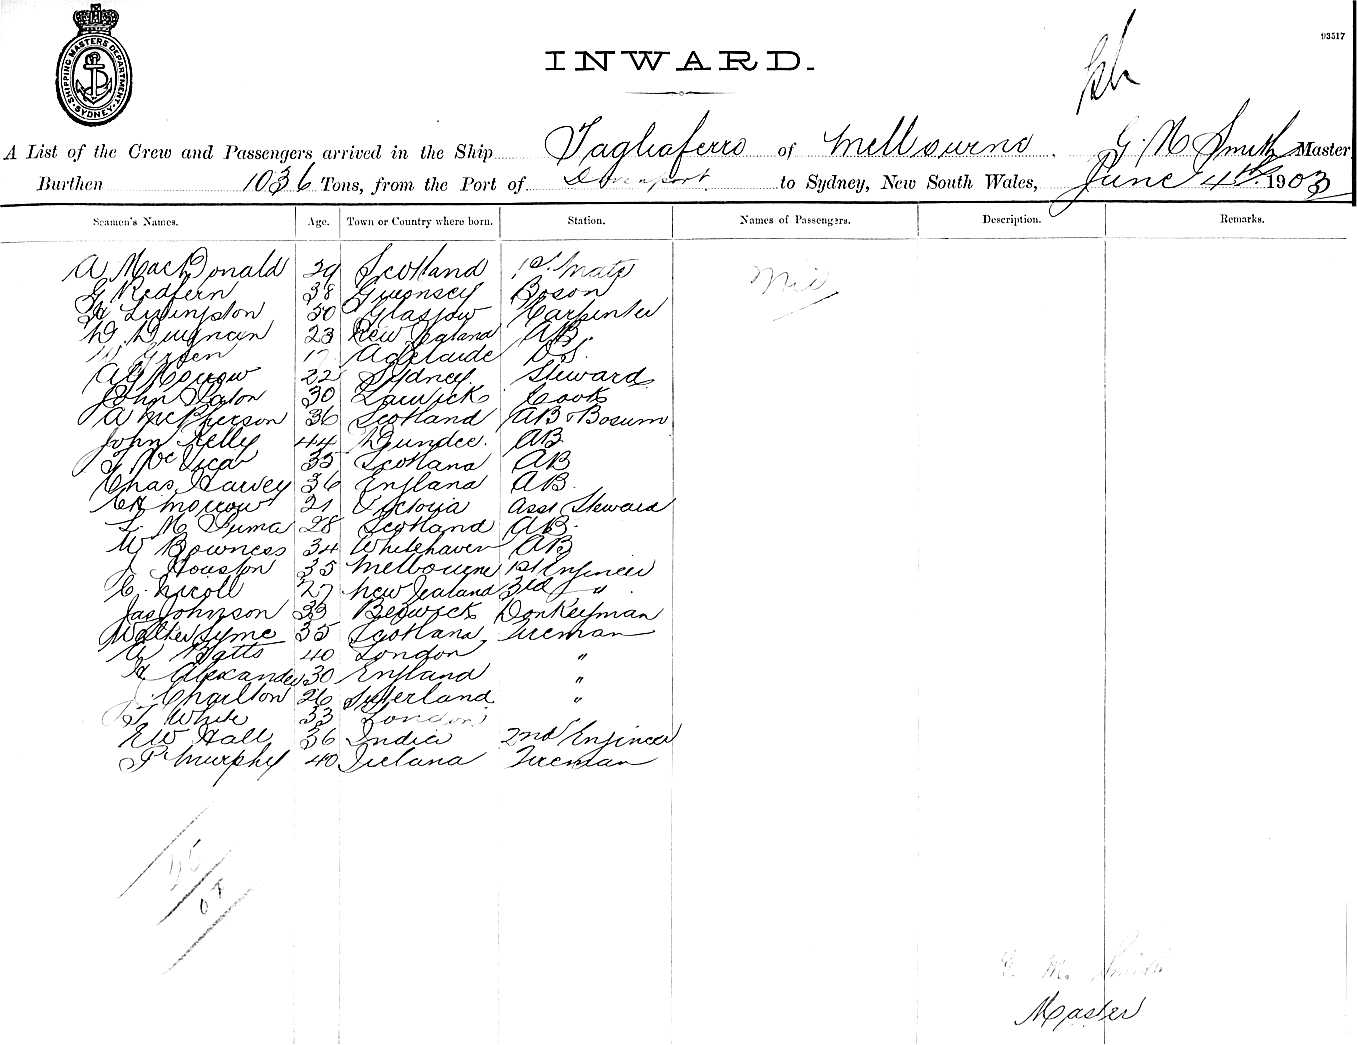 SHIPPING MASTERS DEPARTMENT
SYDNEY
93517
INWARD.
A List of the Crew and Passengers arrived in the Ship Tagliaferro of Melbourne, G. M Smith Master
Burthen 1036 Tons, from the Port of Devenport to Sydney, New South Wales, June 4th 1903
Seamen's Names. Age. Town or Country where born. Station. Names of Passengers. Description. Remarks.
A MacDonald 29 Scotland 1st Mate Nil
G Redfern 38 Guernsey Boson
H Livingston 50 Glasgow Karpinter
D. Dugnan 23 New Zealand AB.
W Green 17 Adelaide O S.
A G Morrow 22 Sydney Steward
John Eaton 30 Larwick Cook
A McPherson 36 Scotland AB & Bosum
John Kelly 44 Dundee. AB
T McVicar 35 Scotland AB
Chas Harvey 36 England AB.
C H Morrow 21 Victoria Asst Steward
L M Suma 28 Scotland AB.
W Bowness 34 Whitehaven AB
J Houston 35 Melbourne 1st Engineer
C. Nicoll 27 New Zealand 3rd "
Jas Johnson 33 Berwick Donkeyman
Walter Syme 35 Scotland Fireman
G Batts 40 London "
H Alexander 30 England "
J Charlton 26 "
T White 33 London
E W Hall 36 India 2nd Engineer
P Murphy 40 Ireland Fireman
G. M. Smith
Master